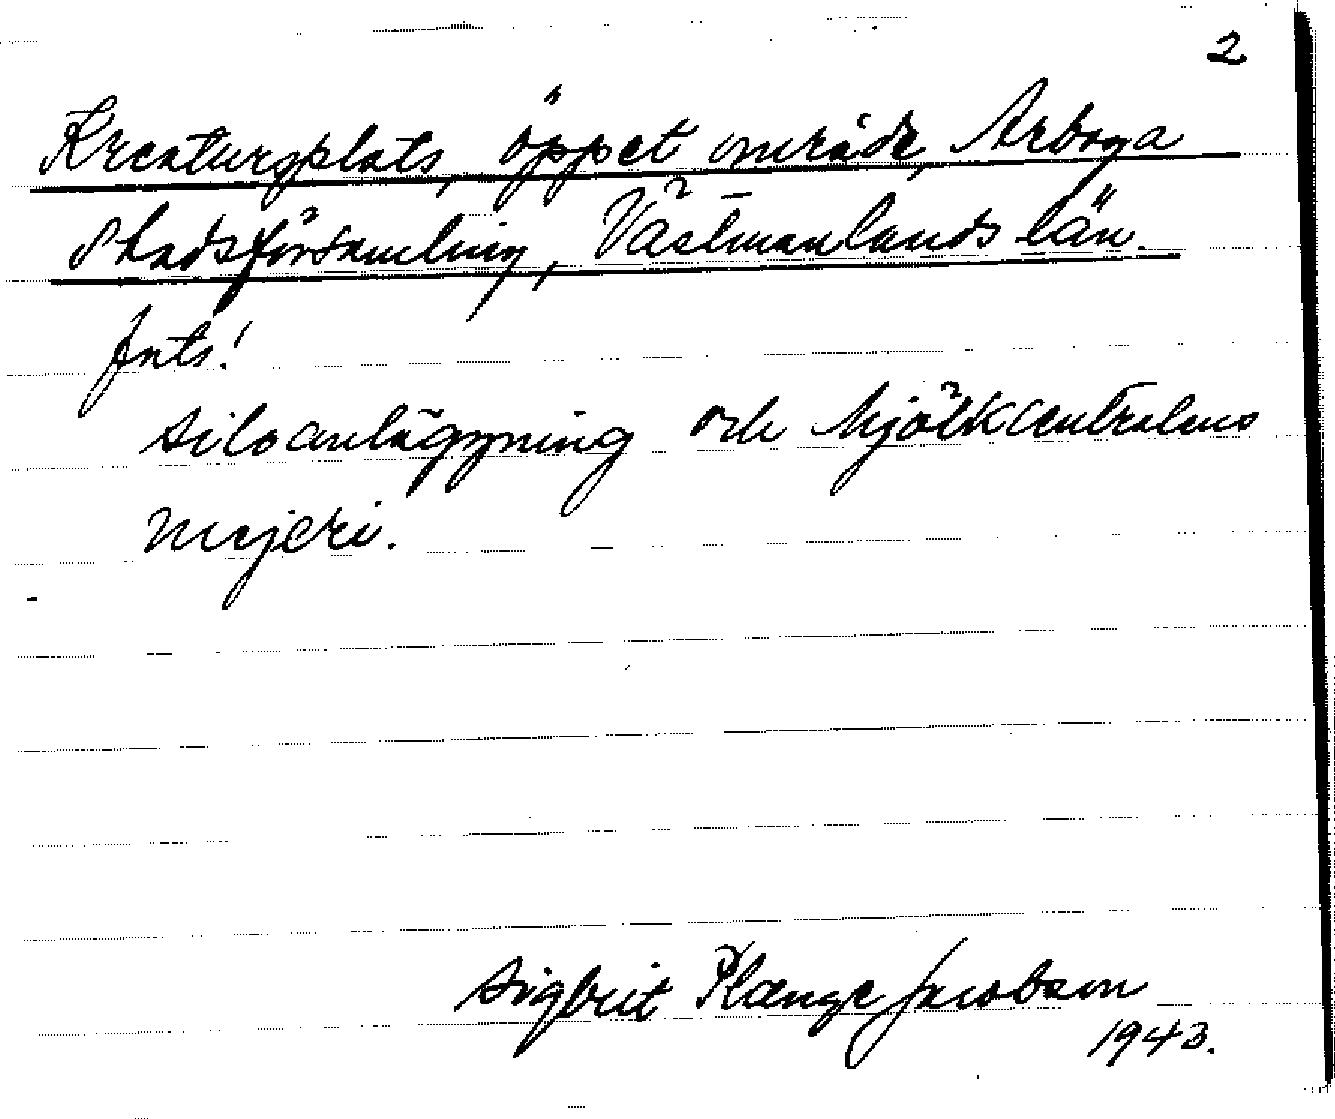 2
Kreatursplats, öppet område, Arboga
Stadsförsamling, Västmanlands län.
Jnts!
siloanläggning och Mjölkcentralens
mejeri.
Sigbrit Plænge Jacobson
1943.